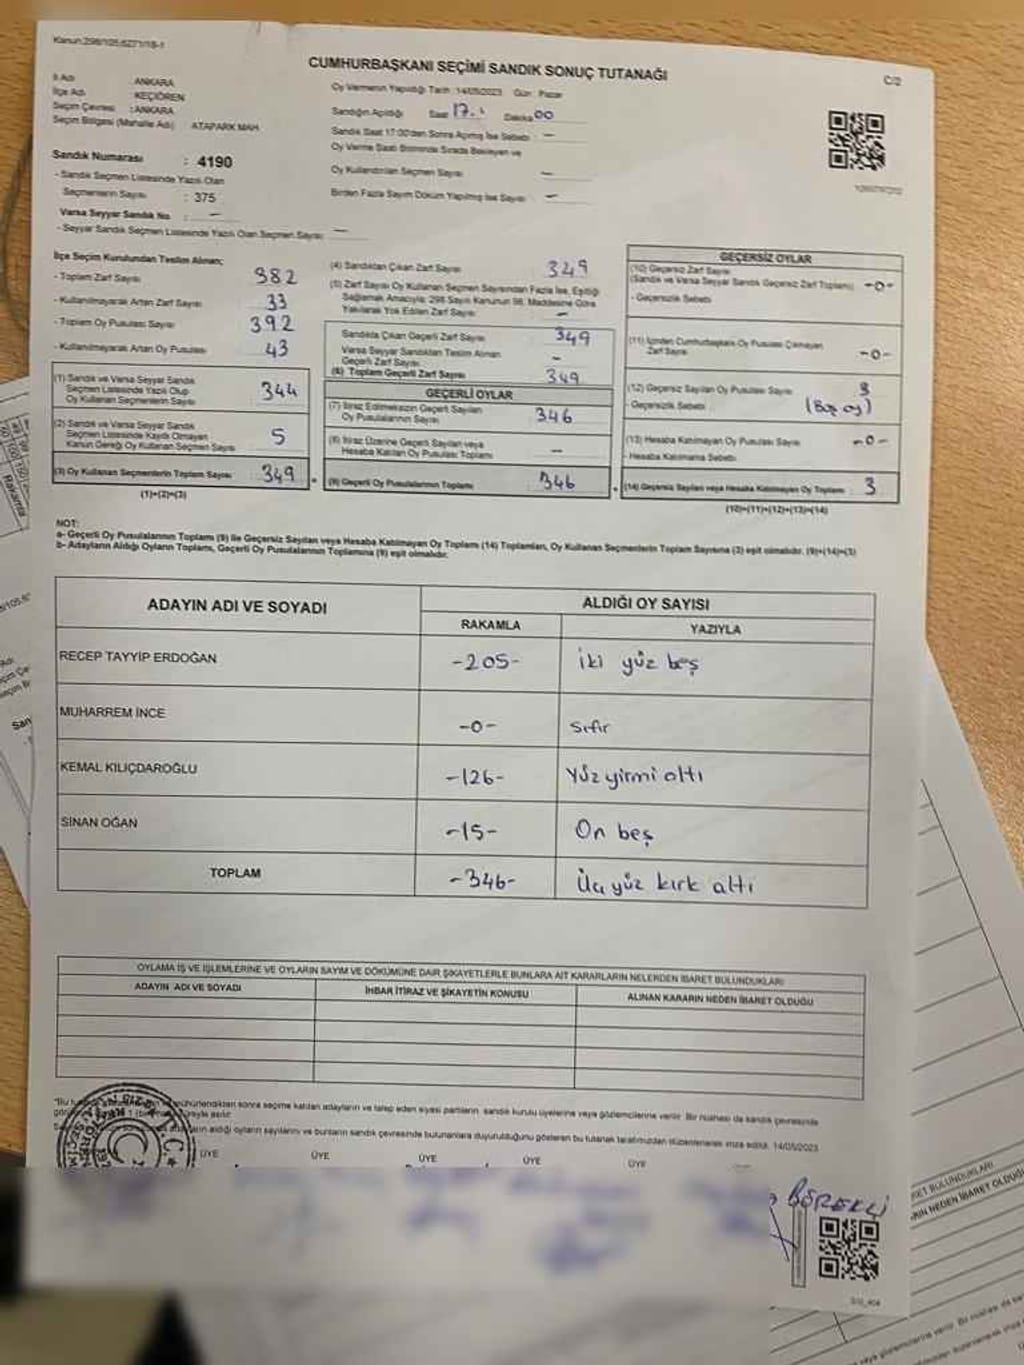 Kanun:298/105,6271/18-1
CUMHURBAŞKANI SEÇİMİ SANDIK SONUÇ TUTANAĞI
C/2
İl Adı : ANKARA
İlçe Adı : KEÇİÖREN
Seçim Çevresi : ANKARA
Seçim Bölgesi (Mahalle Adı) ATAPARK MAH
Oy Vermenin Yapıldığı Tarih : 14/05/2023 Gün : Pazar
Sandığın Açıldığı Saat 17. Dakika 00
Sandık Saat 17:00'den Sonra Açılmış İse Sebebi : -
Oy Verme Saati Bitiminde Sırada Bekleyen ve
Oy Kullandırılan Seçmen Sayısı -
Birden Fazla Sayım Döküm Yapılmış İse Sayısı : -
Sandık Numarası : 4190
- Sandık Seçmen Listesinde Yazılı Olan
Seçmenlerin Sayısı : 375
Varsa Seyyar Sandık No : -
- Seyyar Sandık Seçmen Listesinde Yazılı Olan Seçmen Sayısı -
İlçe Seçim Kurulundan Teslim Alınan;
- Toplam Zarf Sayısı 382
- Kullanılmayarak Artan Zarf Sayısı 33
- Toplam Oy Pusulası Sayısı 392
- Kullanılmayarak Artan Oy Pusulası 43
(1) Sandık ve Varsa Seyyar Sandık
Seçmen Listesinde Yazılı Olup
Oy Kullanan Seçmenlerin Sayısı 344
(2) Sandık ve Varsa Seyyar Sandık
Seçmen Listesinde Kaydı Olmayan
Kanun Gereği Oy Kullanan Seçmen Sayısı 5
(3) Oy Kullanan Seçmenlerin Toplam Sayısı 349
(1)+(2)=(3)
(4) Sandıktan Çıkan Zarf Sayısı 349
(5) Zarf Sayısı Oy Kullanan Seçmen Sayısından Fazla İse, Eşitliği
Sağlamak Amacıyla; 298 Sayılı Kanunun 98. Maddesine Göre
Yakılarak Yok Edilen Zarf Sayısı -
Sandıkta Çıkan Geçerli Zarf Sayısı 349
Varsa Seyyar Sandıktan Teslim Alınan
Geçerli Zarf Sayısı -
(6) Toplam Geçerli Zarf Sayısı 349
GEÇERLİ OYLAR
(7) İtiraz Edilmeksizin Geçerli Sayılan
Oy Pusulalarının Sayısı 346
(8) İtiraz Üzerine Geçerli Sayılan veya
Hesaba Katılan Oy Pusulası Toplamı -
(9) Geçerli Oy Pusulalarının Toplamı 346
GEÇERSİZ OYLAR
(10) Geçersiz Zarf Sayısı
(Sandık ve Varsa Seyyar Sandık Geçersiz Zarf Toplamı) -0-
- Geçersizlik Sebebi
(11) İçinden Cumhurbaşkanı Oy Pusulası Çıkmayan
Zarf Sayısı -0-
(12) Geçersiz Sayılan Oy Pusulası Sayısı 3
- Geçersizlik Sebebi (Boş oy)
(13) Hesaba Katılmayan Oy Pusulası Sayısı -0-
- Hesaba Katılmama Sebebi
(14) Geçersiz Sayılan veya Hesaba Katılmayan Oy Toplamı 3
(10)+(11)+(12)+(13)=(14)
NOT:
a- Geçerli Oy Pusulalarının Toplamı (9) ile Geçersiz Sayılan veya Hesaba Katılmayan Oy Toplamı (14) Toplamları, Oy Kullanan Seçmenlerin Toplam Sayısına (3) eşit olmalıdır. (9)+(14)=(3)
b- Adayların Aldığı Oyların Toplamı, Geçerli Oy Pusulalarının Toplamına (9) eşit olmalıdır.
ADAYIN ADI VE SOYADI
ALDIĞI OY SAYISI
RAKAMLA YAZIYLA
RECEP TAYYİP ERDOĞAN -205- iki yüz beş
MUHARREM İNCE -0- Sıfır
KEMAL KILIÇDAROĞLU -126- Yüz yirmi altı
SİNAN OĞAN -15- On beş
TOPLAM -346- Üç yüz kırk altı
OYLAMA İŞ VE İŞLEMLERİNE VE OYLARIN SAYIM VE DÖKÜMÜNE DAİR ŞİKAYETLERLE BUNLARA AİT KARARLARIN NELERDEN İBARET BULUNDUKLARI
ADAYIN ADI VE SOYADI İHBAR İTİRAZ VE ŞİKAYETİN KONUSU ALINAN KARARIN NEDEN İBARET OLDUĞU
mühürlendikten sonra seçime katılan adayların ve talep eden siyasi partilerin sandık kurulu üyelerine veya gözlemcilerine verilir. Bir nüshası da sandık çevresinde
aldığı oyların sayılarını ve bunların sandık çevresinde bulunanlara duyurulduğunu gösteren bu tutanak tarafımızdan düzenlenerek imza edildi. 14/05/2023
ÜYE ÜYE ÜYE ÜYE ÜYE
BÖREKLİ